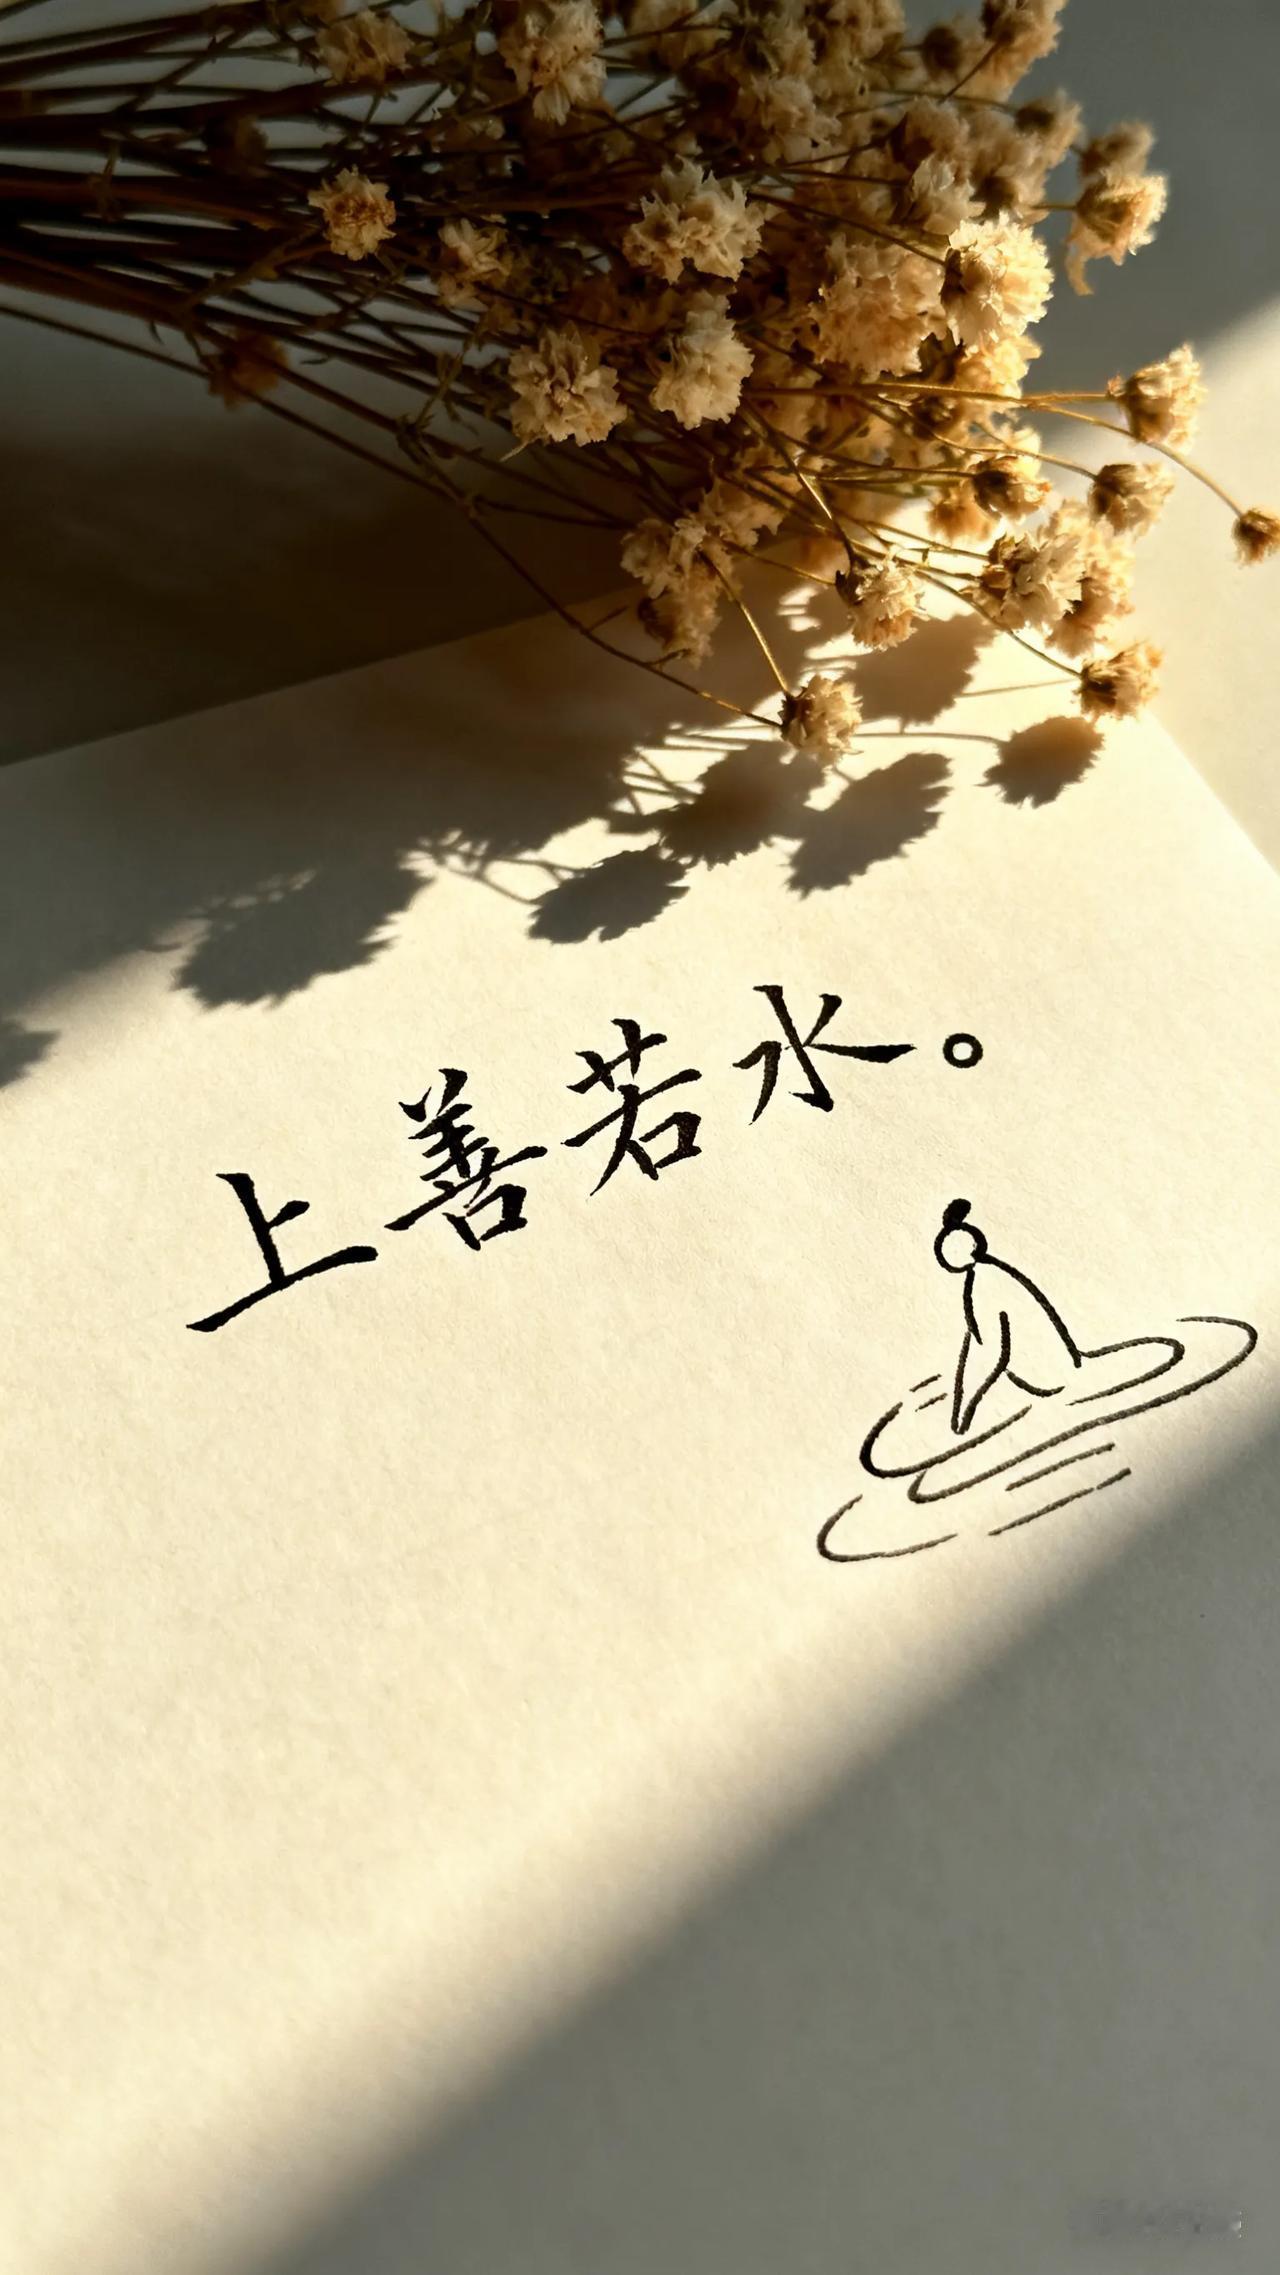 上善若水。